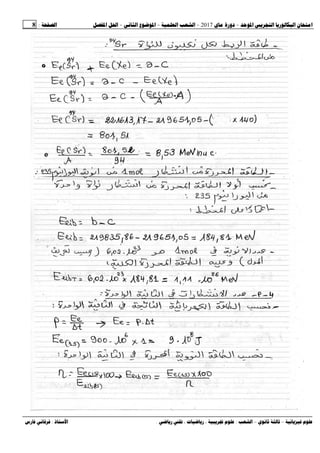 امتحان البكالوريا التجريبي الموحد - دورة ماي 2017 - الشعب العلمية - الموضوع الثاني - الحل المفصل الصفحة 8
- طاقة الربط لكل نكليون للنواة ⁹⁴Sr
من المخطط
• Eℓ(⁹⁴Sr) + Eℓ(Xe) = a - c
Eℓ(Sr) = a - c - Eℓ(Xe)
Eℓ(Sr) = a - c - (Eℓ(Xe)/A × A)
Eℓ(Sr) = 221613,87 - 219651,05 - ( × 140)
= 801,51
• Eℓ(Sr)/A = 801,51/94 = 8,53 MeV/nuc
- الطاقة المحررة من انشطار 1mol من أنوية اليورانيوم 235:
- نحسب أولا الطاقة المحررة من انشطار نواة واحدة
من اليورانيوم 235
Elib = b - c
Elib = 219835,86 - 219651,05 = 184,81 MeV
- عدد الأنوية في 1mol هو 6,02.10²³ (حسب تعريف
المول) وعليه الطاقة المحررة الكلية:
ElibT = 6,02.10²³ × 184,81 = 1,11.10²⁶ MeV
P-4- عدد الانشطارات في الثانية الواحدة:
- نحسب الطاقة الكهربائية الناتجة في الثانية الواحدة:
P = Ee/Δt → Ee = P.Δt
Ee(1s) = 900.10⁶ × 1 = 9.10⁸ J
- نحسب الطاقة النووية المحررة في الثانية الواحدة:
علوم فيزيائية - ثالثة ثانوي - الشعب : علوم تجريبية - رياضيات - تقني رياضي الأستاذ : فرقاني فارس